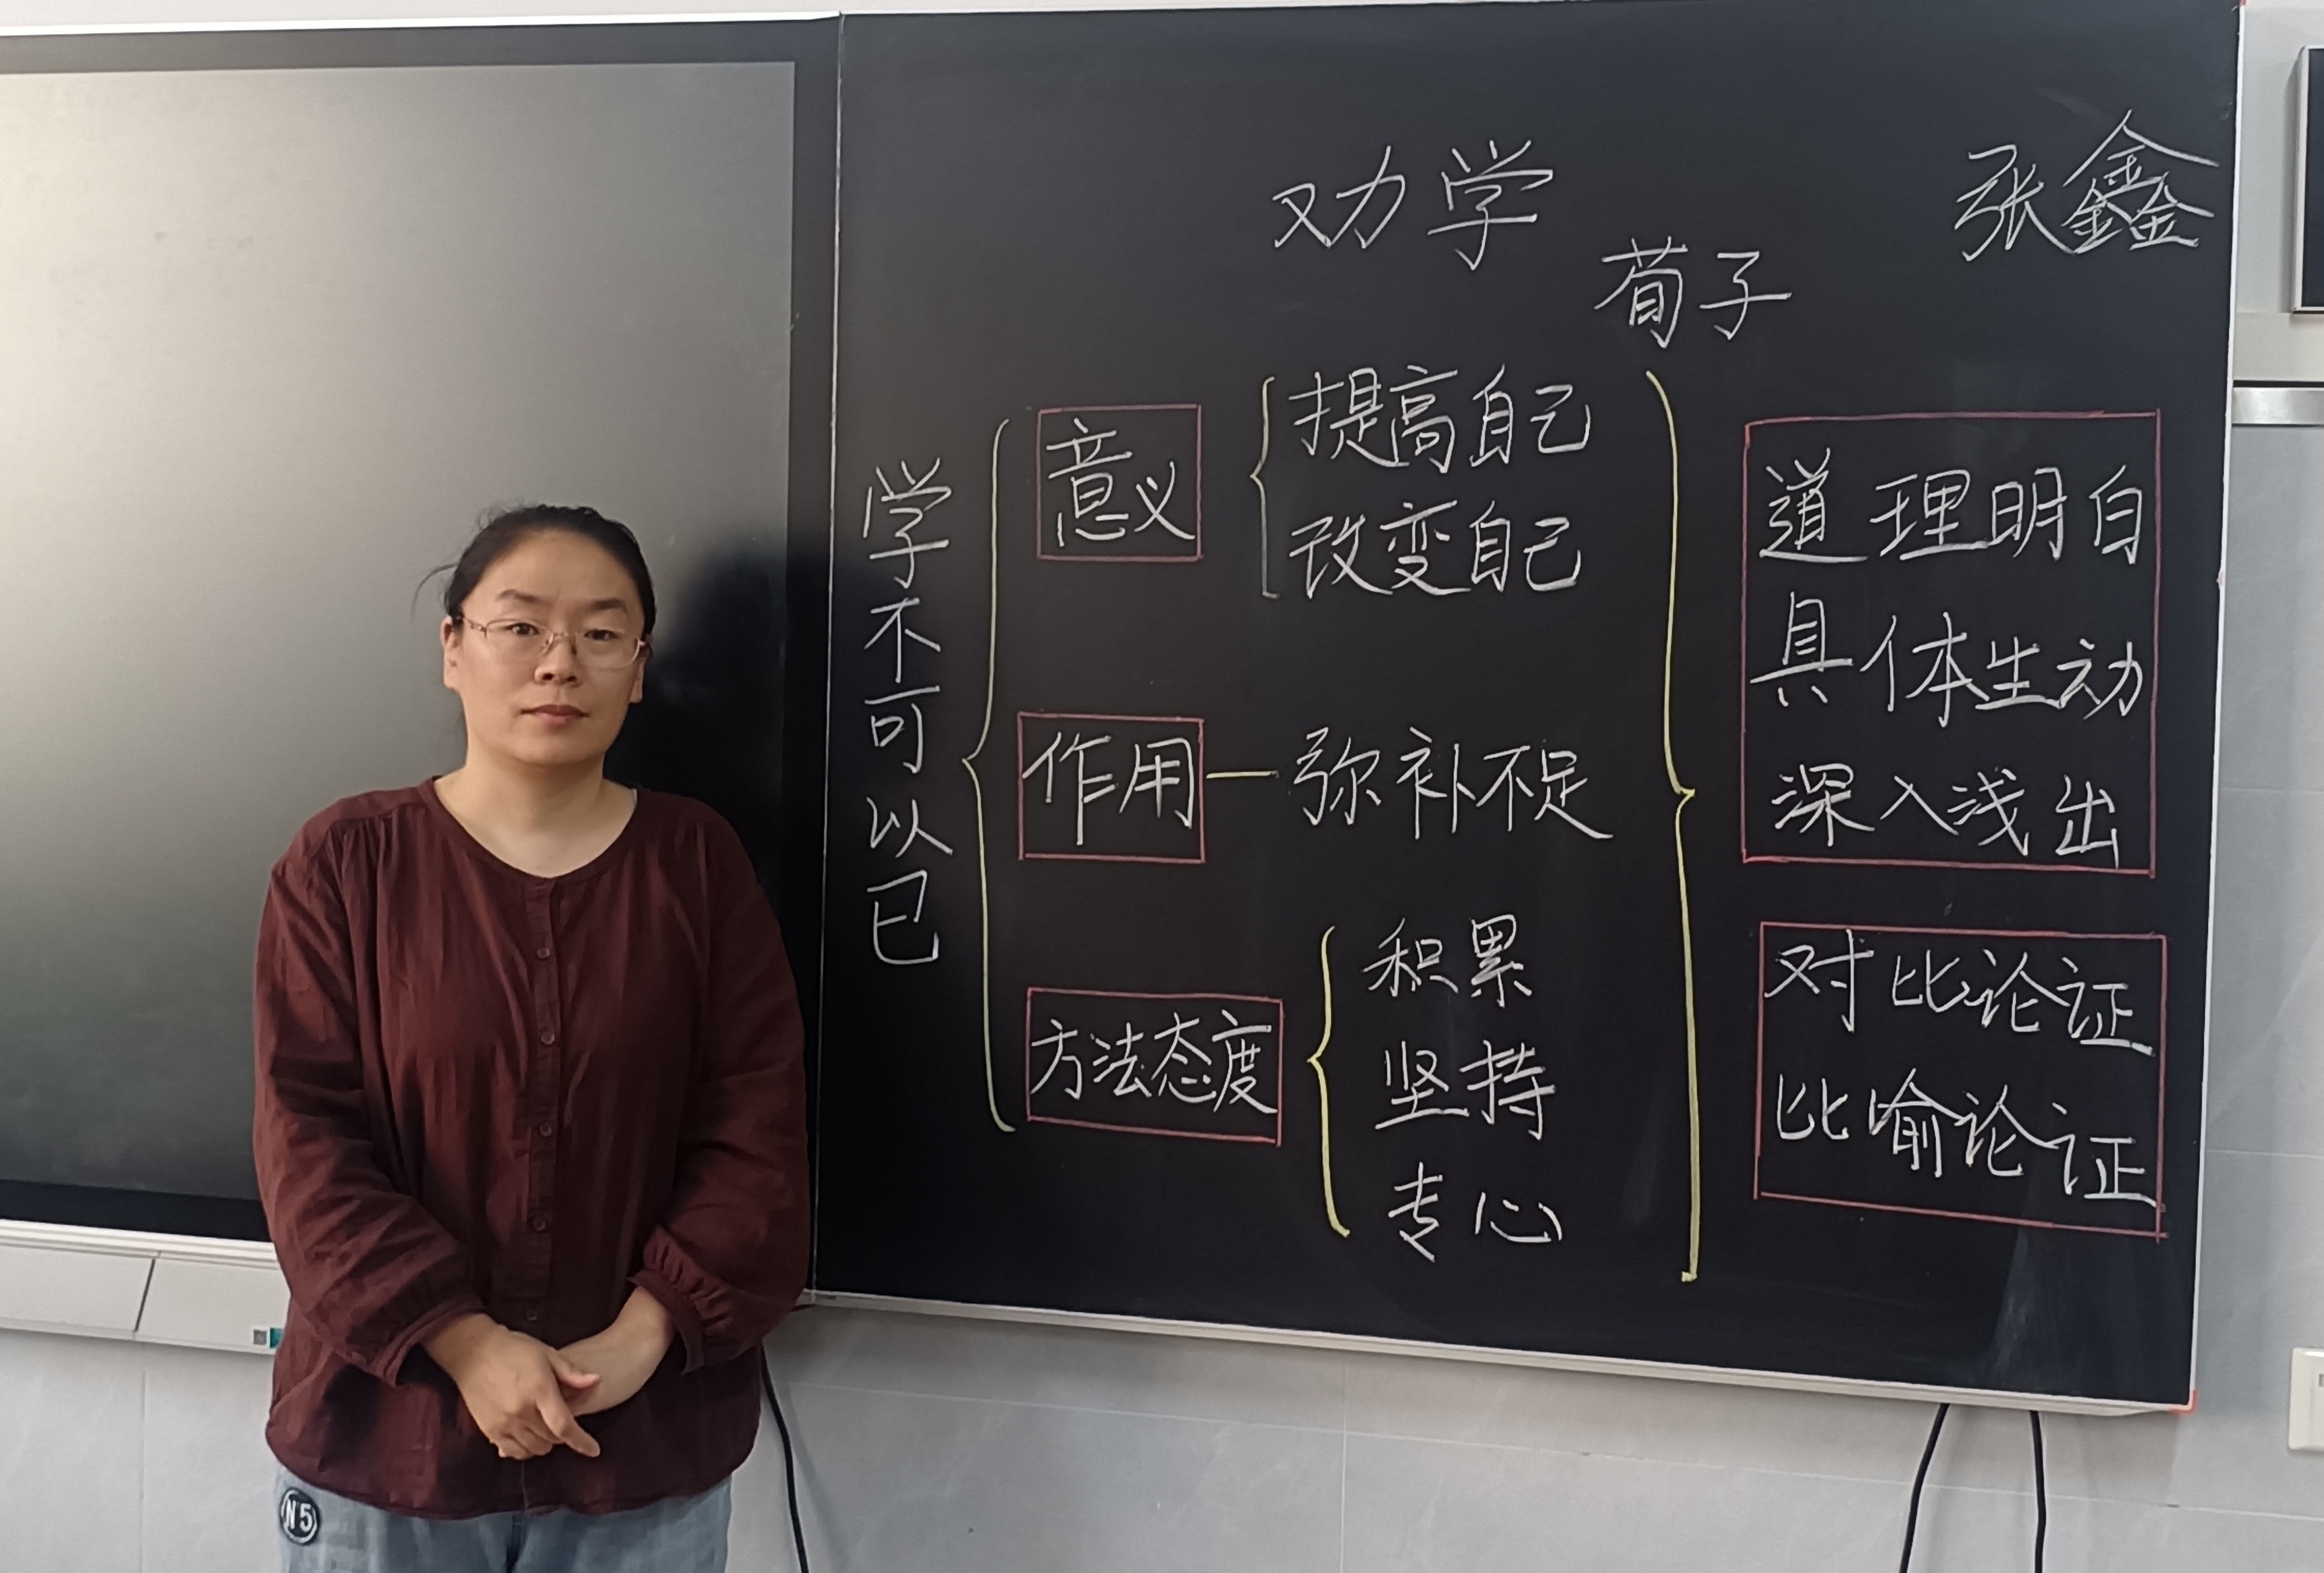 劝学
张鑫
荀子
学不可以已
意义
提高自己
改变自己
作用
弥补不足
方法态度
积累
坚持
专心
道理明白
具体生动
深入浅出
对比论证
比喻论证
N5